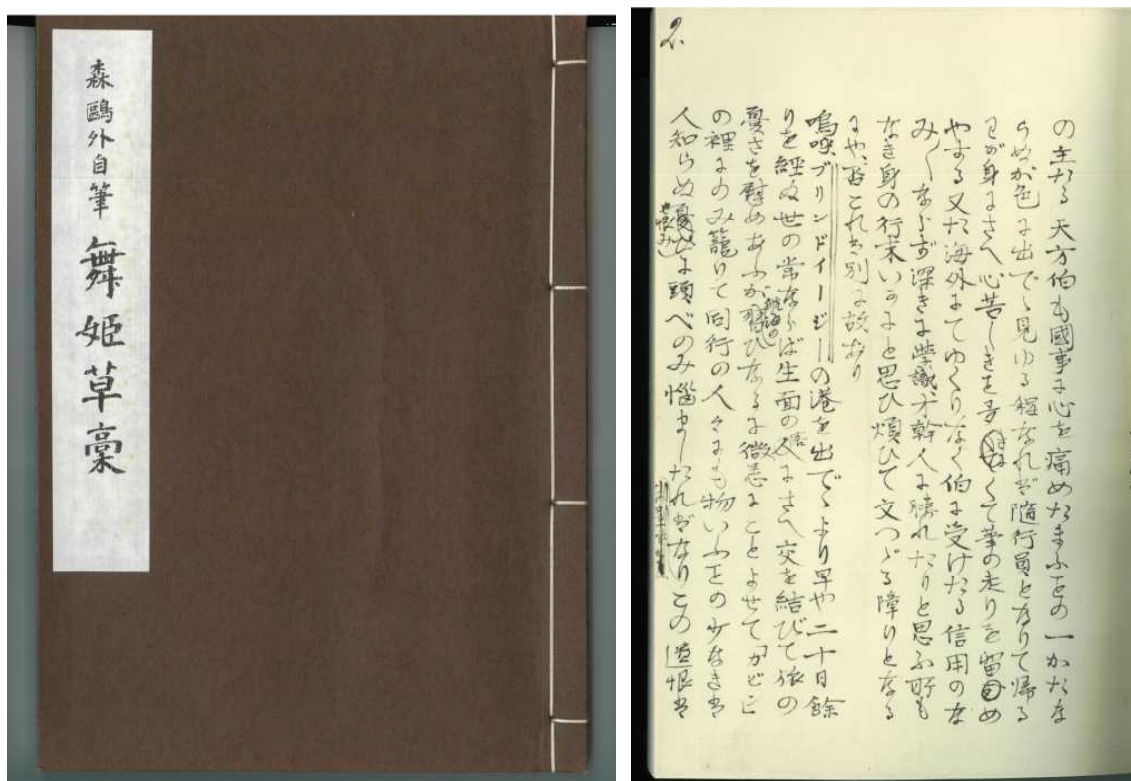 森鷗外自筆 舞姫草稾
2.
の主たる天方伯も國事に心を痛めたまふことの一かたな
らぬが色に出でゝ見ゆる程なれば隨行員となりて帰る
わが身にさへ心苦しきこと多くて筆の走りを留め
やする又た海外にてゆくりなく伯に受けたる信用のな
み〱ならず深きに學識才幹人に勝れたりと思ふ所も
なき身の行末いかにと思ひ煩ひて文つゞる障りとなる
にや、否これには別に故あり
嗚呼、ブリンドイージーの港を出でゝより早や二十日餘
りを經ぬ世の常ならば生面の人にさへ交を結びて旅の
憂さを慰めあふが航海の習ひなるに微恙にことよせて
の裡にのみ籠りて同行の人々にも物いふことの少なきは
人知らぬ恨みに頭べのみ惱ましたればなりこの遺恨は